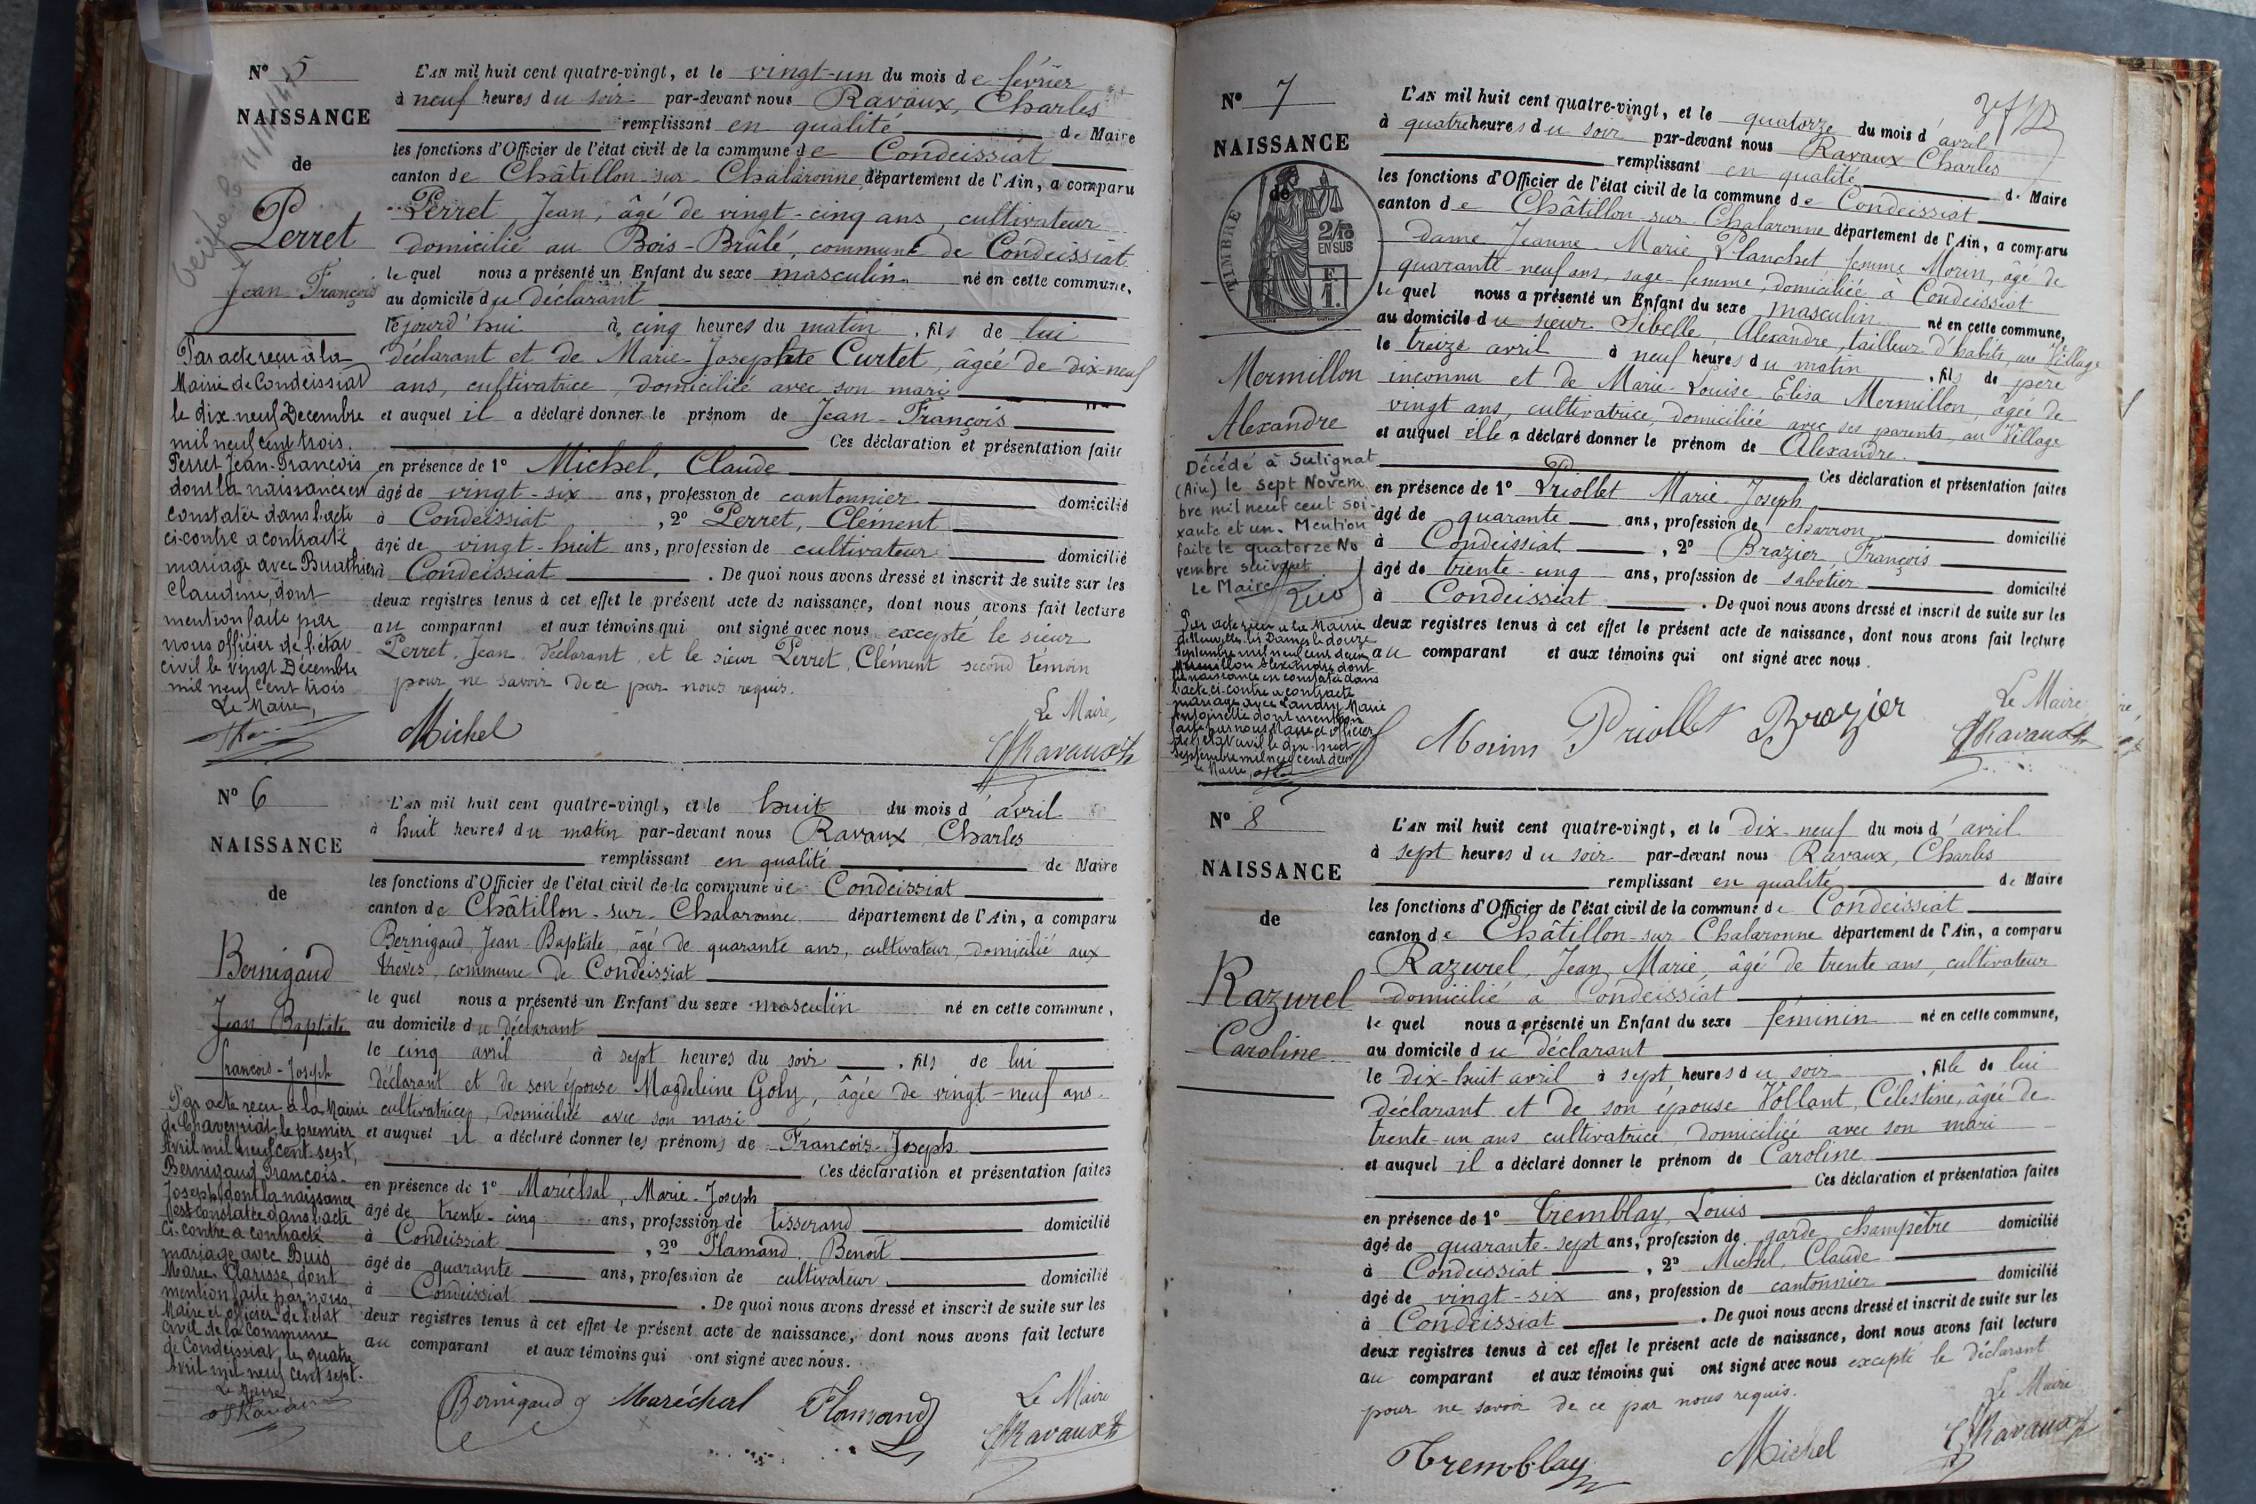 N° 5
NAISSANCE
de
Perret
Jean-François
Par acte reçu à la
Mairie de Condeissiat
le dix-neuf Décembre
mil neuf cent trois.
Perret Jean-François
dont la naissance est
constatée dans l'acte
ci-contre a contracté
mariage avec
Claudine, dont
mention faite par
nous officier de l'état
civil le vingt Décembre
mil neuf cent trois
Le Maire,
L'AN mil huit cent quatre-vingt, et le vingt-un du mois de février
à neuf heures du soir par-devant nous Ravaux, Charles
remplissant en qualité de Maire
les fonctions d'Officier de l'état civil de la commune de Condeissiat
canton de Châtillon-sur-Chalaronne, département de l'Ain, a comparu
Perret, Jean, âgé de vingt-cinq ans, cultivateur
domicilié au Bois-Brûlé, commune de Condeissiat
le quel nous a présenté un Enfant du sexe masculin né en cette commune,
au domicile du déclarant
le jourd'hui à cinq heures du matin, fils de lui
déclarant et de Marie-Josephte Curtet, âgée de dix-neuf
ans, cultivatrice, domiciliée avec son mari
et auquel il a déclaré donner le prénom de Jean-François
Ces déclaration et présentation faites
en présence de 1° Michel, Claude
âgé de vingt-six ans, profession de cantonnier domicilié
à Condeissiat, 2° Perret, Clément
âgé de vingt-huit ans, profession de cultivateur domicilié
à Condeissiat. De quoi nous avons dressé et inscrit de suite sur les
deux registres tenus à cet effet le présent acte de naissance, dont nous avons fait lecture
au comparant et aux témoins qui ont signé avec nous excepté le sieur
Perret, Jean, déclarant, et le sieur Perret, Clément second témoin
pour ne savoir de ce par nous requis.
Le Maire,
Michel
Ravaux
N° 6
NAISSANCE
de
Bernigaud
Jean Baptiste
François-Joseph
Par acte reçu à la Mairie
de Chaveyriat, le premier
Avril mil neuf cent sept,
Bernigaud François-
Joseph dont la naissance
est constatée dans l'acte
ci-contre a contracté
mariage avec Buis
Marie Clarisse, dont
mention faite par nous,
Maire et officier de l'état
civil de la Commune
de Condeissiat, le quatre
Avril mil neuf cent sept.
Le Maire
L'AN mil huit cent quatre-vingt, et le huit du mois d'avril
à huit heures du matin par-devant nous Ravaux Charles
remplissant en qualité de Maire
les fonctions d'Officier de l'état civil de la commune de Condeissiat
canton de Châtillon-sur-Chalaronne département de l'Ain, a comparu
Bernigaud, Jean-Baptiste, âgé de quarante ans, cultivateur, domicilié aux
Trèves, commune de Condeissiat
le quel nous a présenté un Enfant du sexe masculin né en cette commune,
au domicile du déclarant
le cinq avril à sept heures du soir, fils de lui
déclarant et de son épouse Magdeleine Goly, âgée de vingt-neuf ans.
cultivatrice, domiciliée avec son mari
et auquel il a déclaré donner les prénoms de François-Joseph
Ces déclaration et présentation faites
en présence de 1° Maréchal, Marie-Joseph
âgé de trente-cinq ans, profession de tisserand domicilié
à Condeissiat, 2° Flamand, Benoît
âgé de quarante ans, profession de cultivateur domicilié
à Condeissiat. De quoi nous avons dressé et inscrit de suite sur les
deux registres tenus à cet effet le présent acte de naissance, dont nous avons fait lecture
au comparant et aux témoins qui ont signé avec nous.
Le Maire
Bernigaud Maréchal Flamand Ravaux
N° 7
NAISSANCE
de
TIMBRE
2/10
EN SUS
F
1.
Mermillon
Alexandre
Décédé à Sulignat
(Ain) le sept Novem
bre mil neuf cent soi-
xante et un. Mention
faite le quatorze No
vembre suivant
Le Maire
Par acte reçu à la Mairie
le douze
septembre mil neuf cent deux
Mermillon Alexandre dont
la naissance est constatée dans
l'acte ci-contre a contracté
mariage avec Landry Marie
Antoinette dont mention
faite par nous Maire et officier
de l'état civil le dix-huit
septembre mil neuf cent deux
Le Maire
L'AN mil huit cent quatre-vingt, et le quatorze du mois d'avril
à quatre heures du soir par-devant nous Ravaux Charles
remplissant en qualité de Maire
les fonctions d'Officier de l'état civil de la commune de Condeissiat
canton de Châtillon-sur-Chalaronne département de l'Ain, a comparu
dame Jeanne-Marie Planchet femme Morin, âgé de
quarante-neuf ans, sage-femme, domiciliée à Condeissiat
le quel nous a présenté un Enfant du sexe masculin né en cette commune,
au domicile du sieur Sibelle, Alexandre, tailleur d'habits, au Village
le treize avril à neuf heures du matin, fils de père
inconnu et de Marie-Louise-Elisa Mermillon, âgée de
vingt ans, cultivatrice, domiciliée avec ses parents, au Village
et auquel elle a déclaré donner le prénom de Alexandre.
Ces déclaration et présentation faites
en présence de 1° Priollet Marie-Joseph
âgé de quarante ans, profession de charron domicilié
à Condeissiat, 2° Brazier François
âgé de trente-cinq ans, profession de sabotier domicilié
à Condeissiat. De quoi nous avons dressé et inscrit de suite sur les
deux registres tenus à cet effet le présent acte de naissance, dont nous avons fait lecture
au comparant et aux témoins qui ont signé avec nous.
Le Maire
f Morin Priollet Brazier Ravaux
N° 8
NAISSANCE
de
Razurel
Caroline
L'AN mil huit cent quatre-vingt, et le dix-neuf du mois d'avril
à sept heures du soir par-devant nous Ravaux, Charles
remplissant en qualité de Maire
les fonctions d'Officier de l'état civil de la commune de Condeissiat
canton de Châtillon-sur-Chalaronne département de l'Ain, a comparu
Razurel, Jean Marie, âgé de trente ans, cultivateur
domicilié à Condeissiat
le quel nous a présenté un Enfant du sexe féminin né en cette commune,
au domicile du déclarant
le dix-huit avril à sept heures du soir, fille de lui
déclarant et de son épouse Vollant, Célestine, âgée de
trente-un ans cultivatrice, domiciliée avec son mari
et auquel il a déclaré donner le prénom de Caroline
Ces déclaration et présentation faites
en présence de 1° Tremblay, Louis
âgé de quarante-sept ans, profession de garde champêtre domicilié
à Condeissiat, 2° Michel, Claude
âgé de vingt-six ans, profession de cantonnier domicilié
à Condeissiat. De quoi nous avons dressé et inscrit de suite sur les
deux registres tenus à cet effet le présent acte de naissance, dont nous avons fait lecture
au comparant et aux témoins qui ont signé avec nous excepté le déclarant
pour ne savoir de ce par nous requis.
Le Maire
Tremblay Michel Ravaux